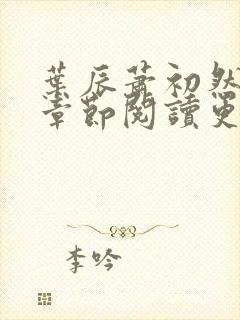 葉辰蕭初然
章節閱讀更
李吟